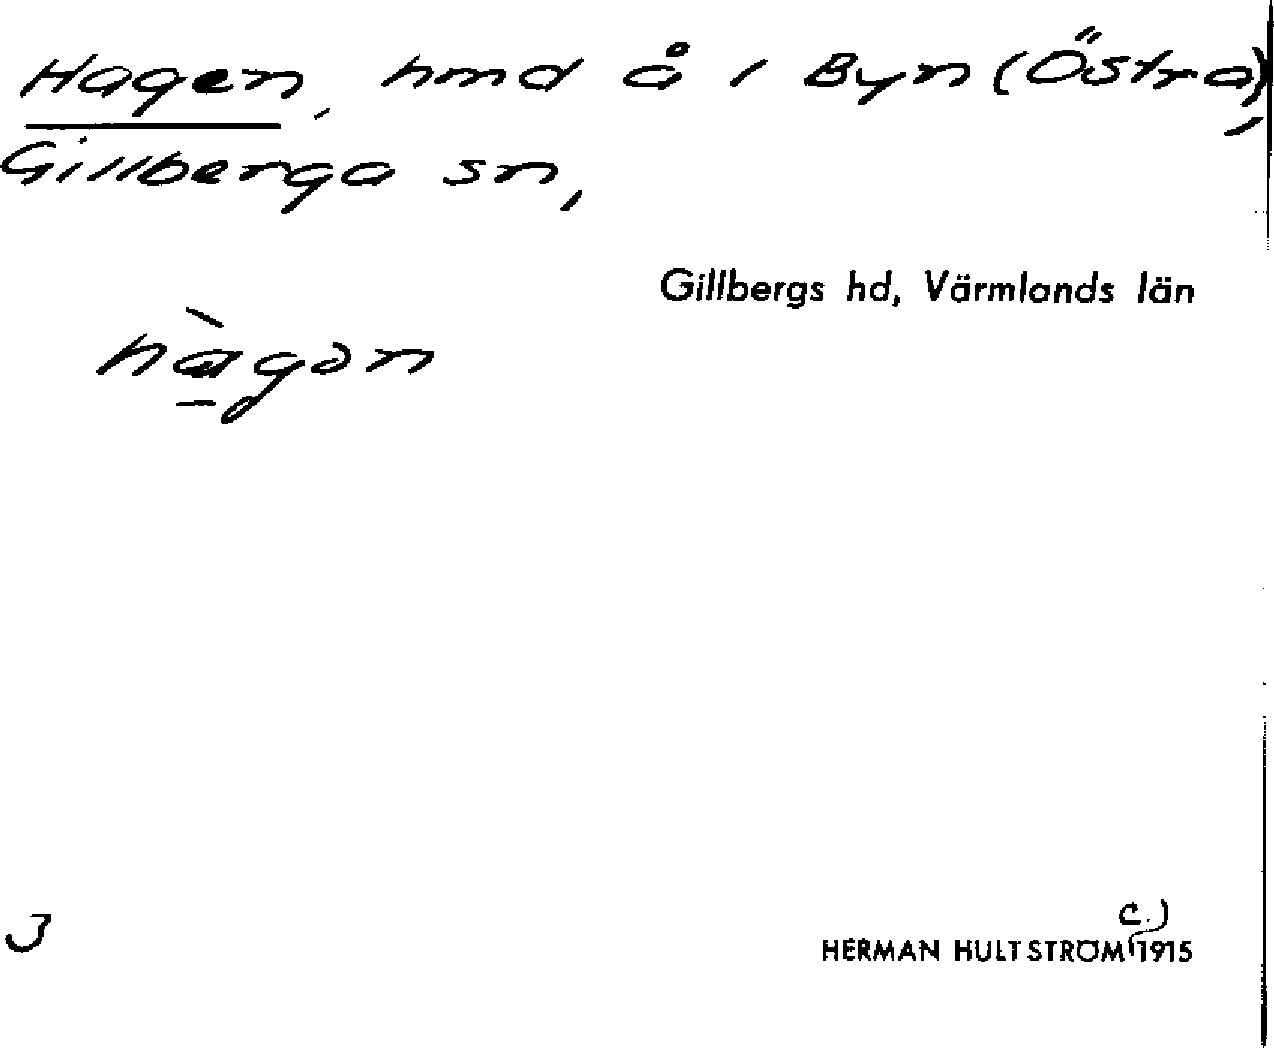 Hagen, hmd å i Byn (Östra),
Gillberga sn,
Gillbergs hd, Värmlands län
hàgon
J
C.)
HERMAN HULTSTRÖM 1915